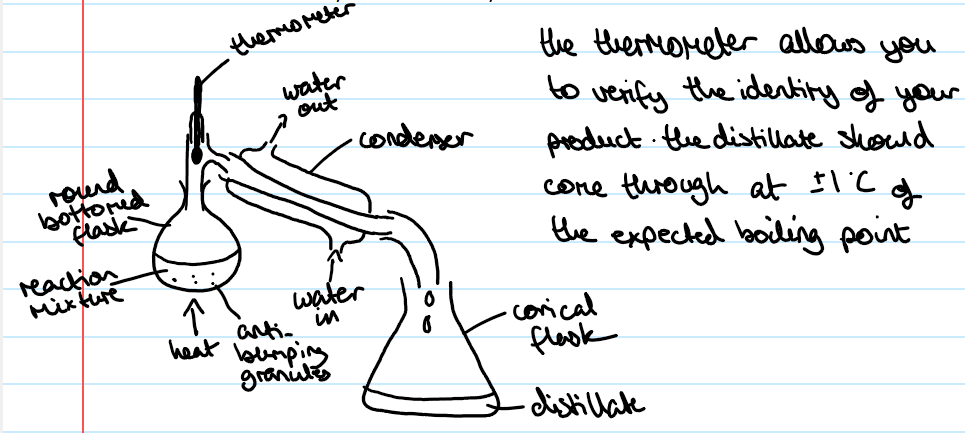 thermometer
water
out
condenser
round
bottomed
flask
reaction
mixture
heat
anti-
bumping
granules
water
in
conical
flask
distillate
the thermometer allows you
to verify the identity of your
product. the distillate should
come through at ±1°C of
the expected boiling point